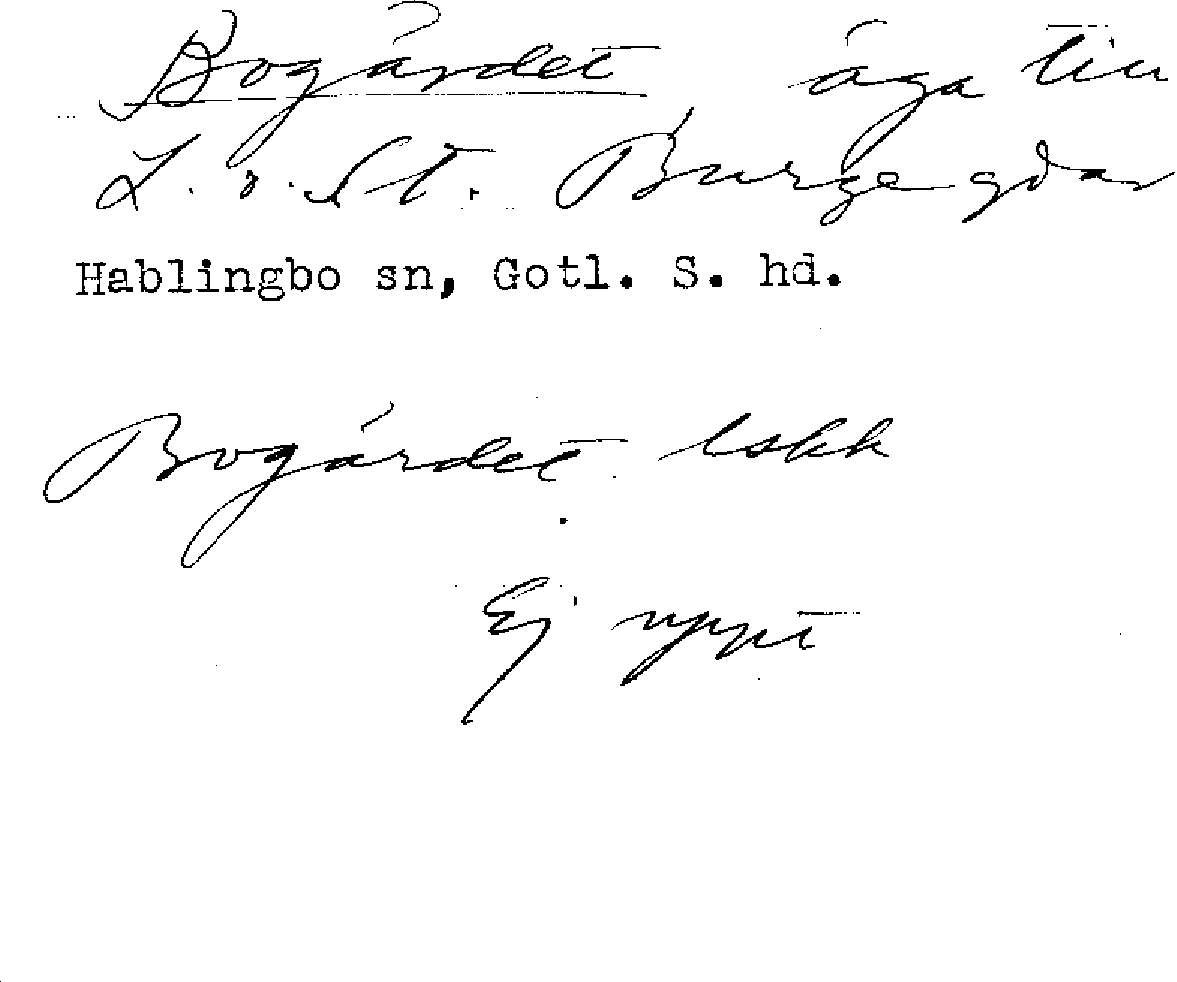 Bogårdet äga till
L. o. St. Burge gdar
Hablingbo sn, Gotl. S. hd.
Bogårdet lskk
Ej uppt